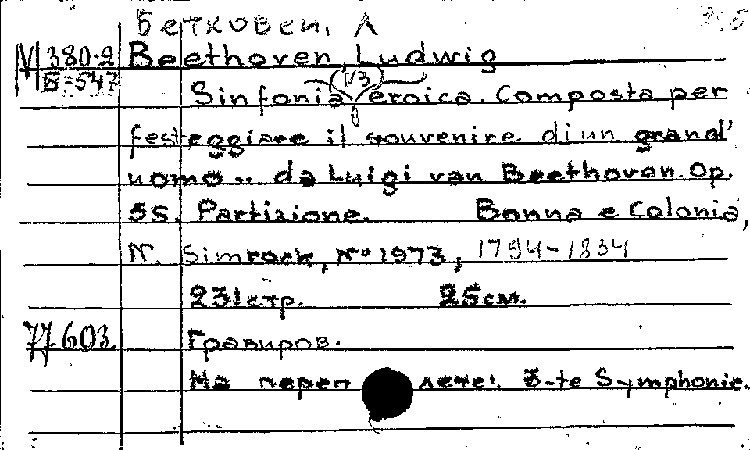 Бетховен, Л
М 380.2 Beethoven, Ludwig
Б-547
(N3)
Sinfonia eroica. Composta per
festeggiare il souvenire di un grand'
uomo.. da Luigi van Beethoven. Op.
55. Partizione. Bonna e Colonia,
N. Simrock, N° 1973, 1794-1834
231 стр. 25 см.
77603. Гравиров.
На переплете: 3-te Symphonie.